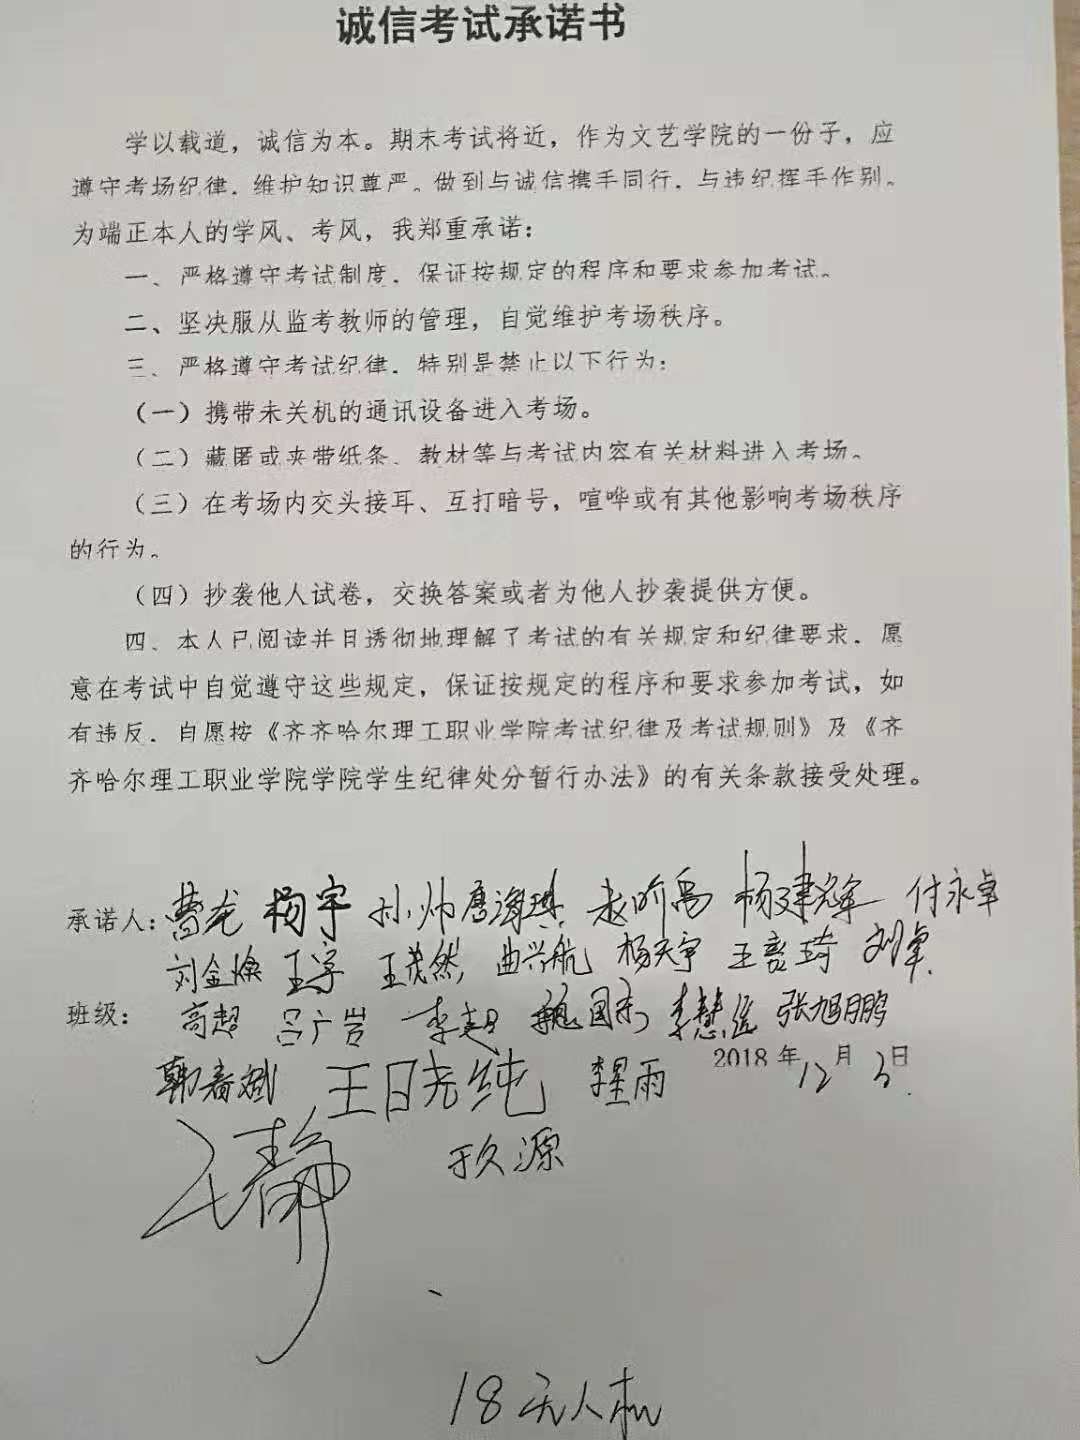 诚信考试承诺书
学以载道，诚信为本。期末考试将近，作为文艺学院的一份子，应
遵守考场纪律，维护知识尊严。做到与诚信携手同行，与违纪挥手作别。
为端正本人的学风、考风，我郑重承诺：
一、严格遵守考试制度，保证按规定的程序和要求参加考试。
二、坚决服从监考教师的管理，自觉维护考场秩序。
三、严格遵守考试纪律，特别是禁止以下行为：
（一）携带未关机的通讯设备进入考场。
（二）藏匿或夹带纸条、教材等与考试内容有关材料进入考场。
（三）在考场内交头接耳、互打暗号，喧哗或有其他影响考场秩序
的行为。
（四）抄袭他人试卷，交换答案或者为他人抄袭提供方便。
四、本人已阅读并且透彻地理解了考试的有关规定和纪律要求，愿
意在考试中自觉遵守这些规定，保证按规定的程序和要求参加考试，如
有违反，自愿按《齐齐哈尔理工职业学院考试纪律及考试规则》及《齐
齐哈尔理工职业学院学院学生纪律处分暂行办法》的有关条款接受处理。
承诺人：曹龙 杨宇 孙帅 唐海琪 赵昕禹 杨建辉 付永卓
刘金焕 王宇 王茂然 曲兴航 杨天宇 王彦琦 刘卓
班级： 高超 吕广岩 李超 魏国 李慧 张旭鹏
韩春斌 王日尧纯 李星雨 2018年12月3日
静 于久源
18无人机